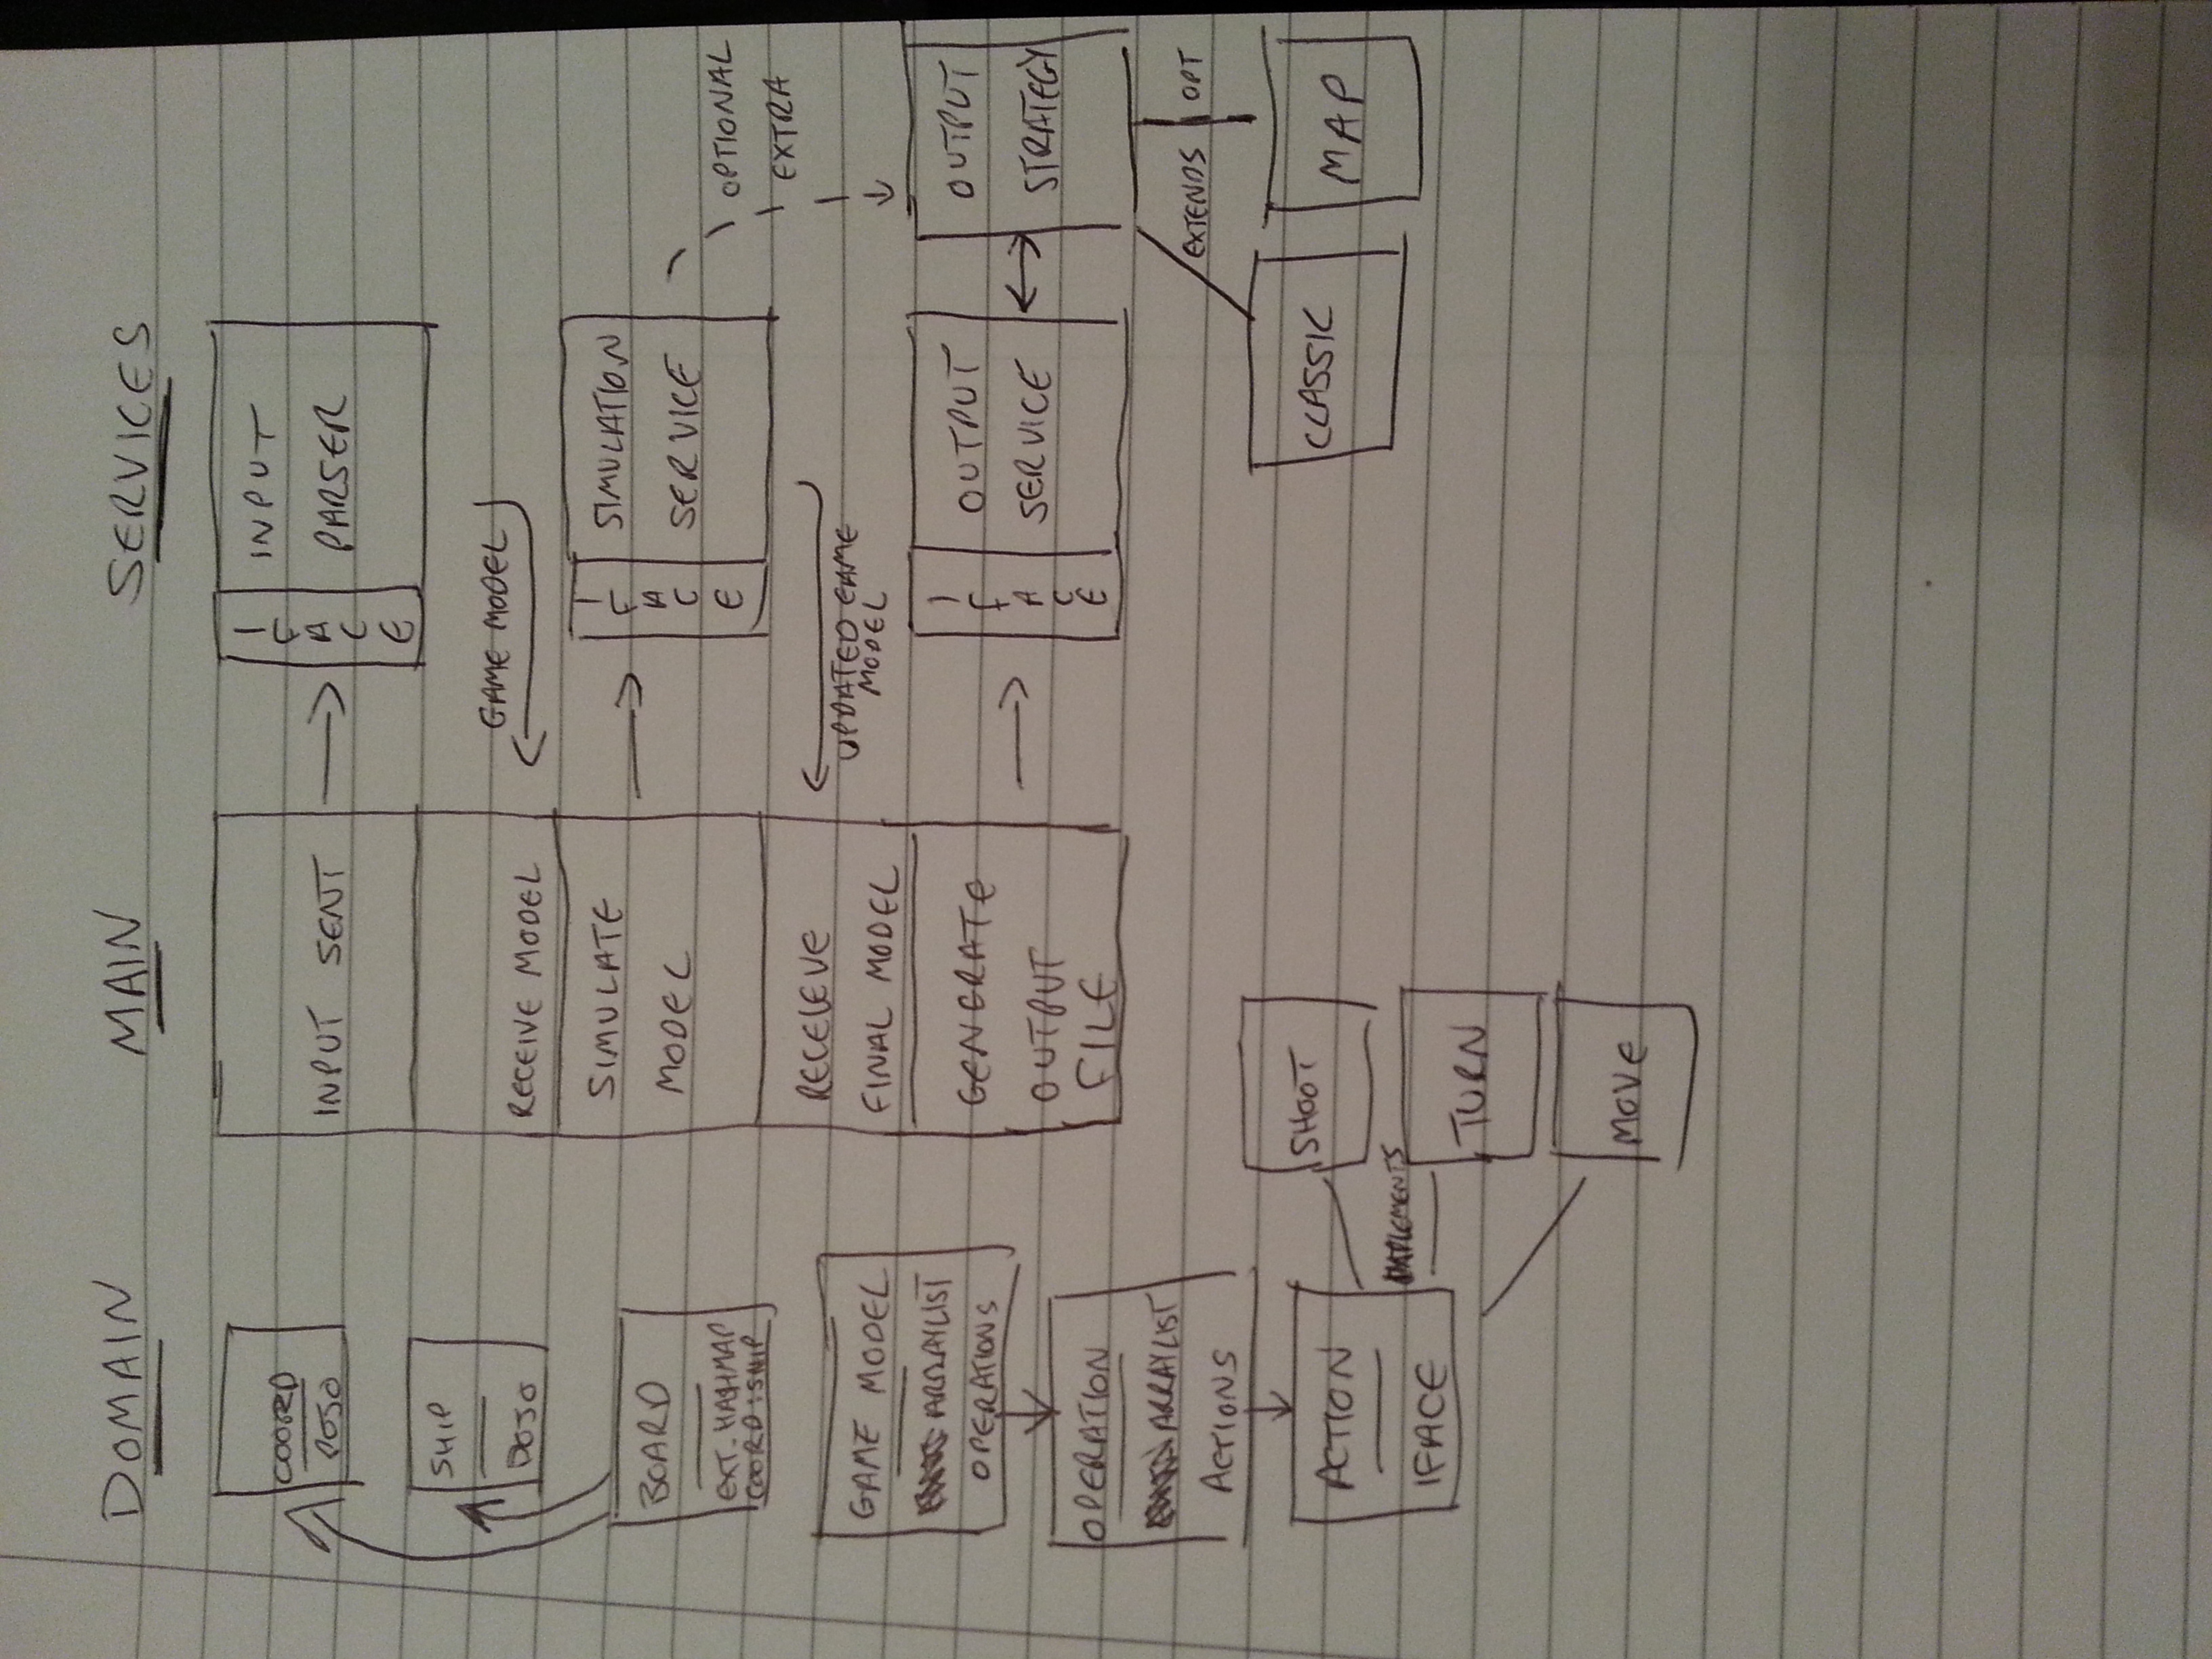 DOMAIN
COORD
POJO
SHIP
POJO
BOARD
EXT. HASHMAP
COORD:SHIP
GAME MODEL
ARRAYLIST
OPERATIONS
OPERATION
ARRAYLIST
ACTIONS
ACTION
IFACE
IMPLEMENTS
SHOOT
TURN
MOVE
MAIN
INPUT SENT
RECEIVE MODEL
SIMULATE
MODEL
RECEIEVE
FINAL MODEL
GENERATE
OUTPUT
FILE
SERVICES
IFACE
INPUT
PARSER
GAME MODEL
IFACE
SIMULATION
SERVICE
OPTIONAL
EXTRA
UPDATED GAME
MODEL
IFACE
OUTPUT
SERVICE
OUTPUT
STRATEGY
EXTENDS
OPT
CLASSIC
MAP